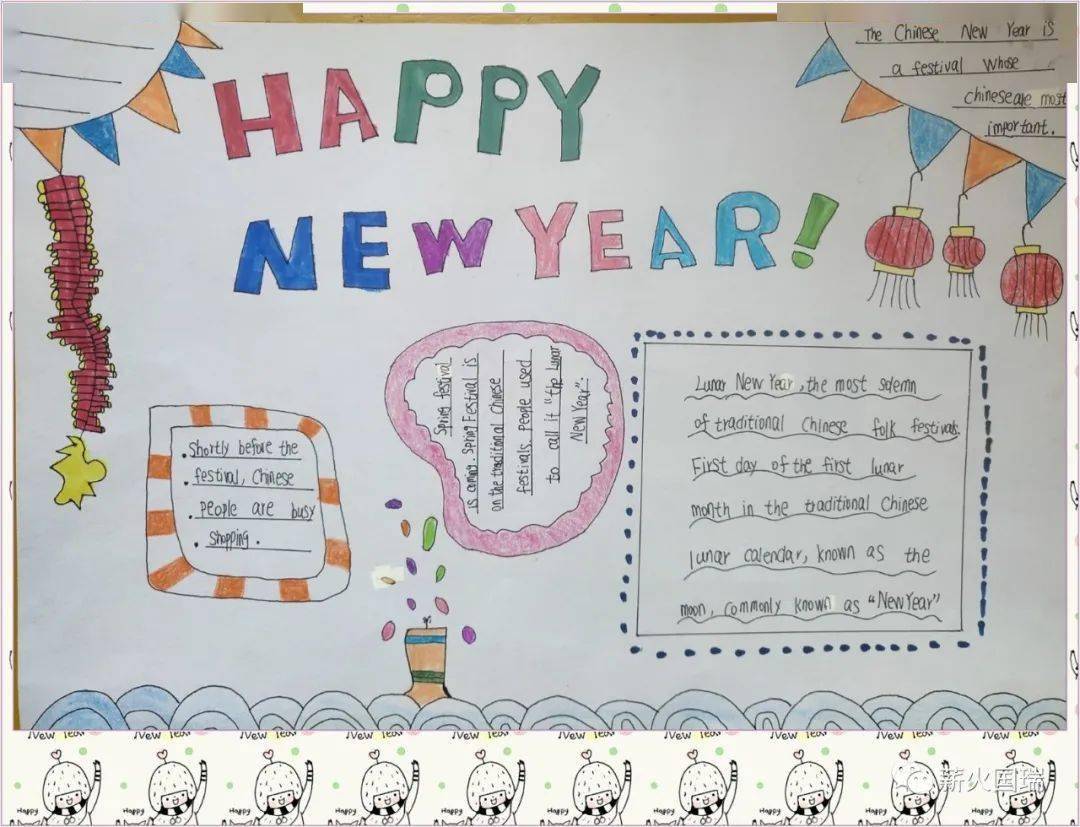 HAPPY
NEW YEAR!
The Chinese New Year is
a festival whose
chinese are most
important.
Shortly before the
festival, Chinese
people are busy
shopping.
Spring festival
is coming. Spring Festival is
on the traditional Chinese
festivals. People used
to call it "the Lunar
New Year".
Lunar New Year, the most solemn
of traditional Chinese folk festivals.
First day of the first lunar
month in the traditional Chinese
lunar calendar, known as the
moon, commonly known as "New Year"
New Year
New Year
New Year
New Year
New Year
New Year
New Year
New Year
Happy
Happy
Happy
Happy
Happy
Happy
Happy
Happy
Happy
薪火国瑞